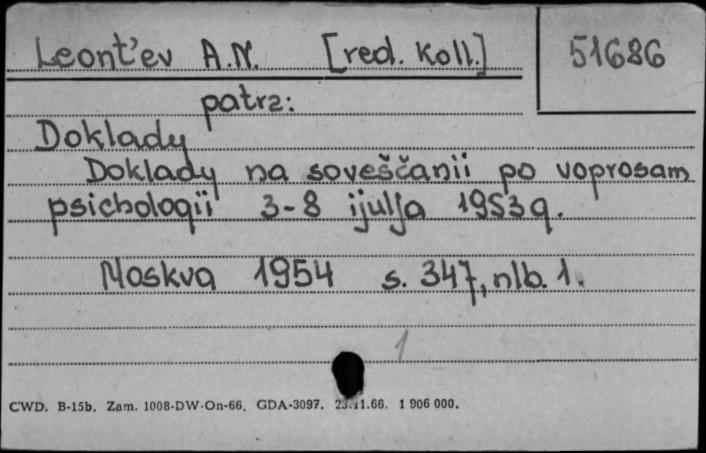 Leont'ev A.N. [red. koll.] 51686
patrz:
Doklady
Doklady na soveščanii po voprosam
psichologii 3-8 ijulja 1953g.
Moskva 1954 s. 347, nlb. 1.
1
CWD. B-15b. Zam. 1008-DW-On-66. GDA-3097. 23.11.66. 1 906 000.